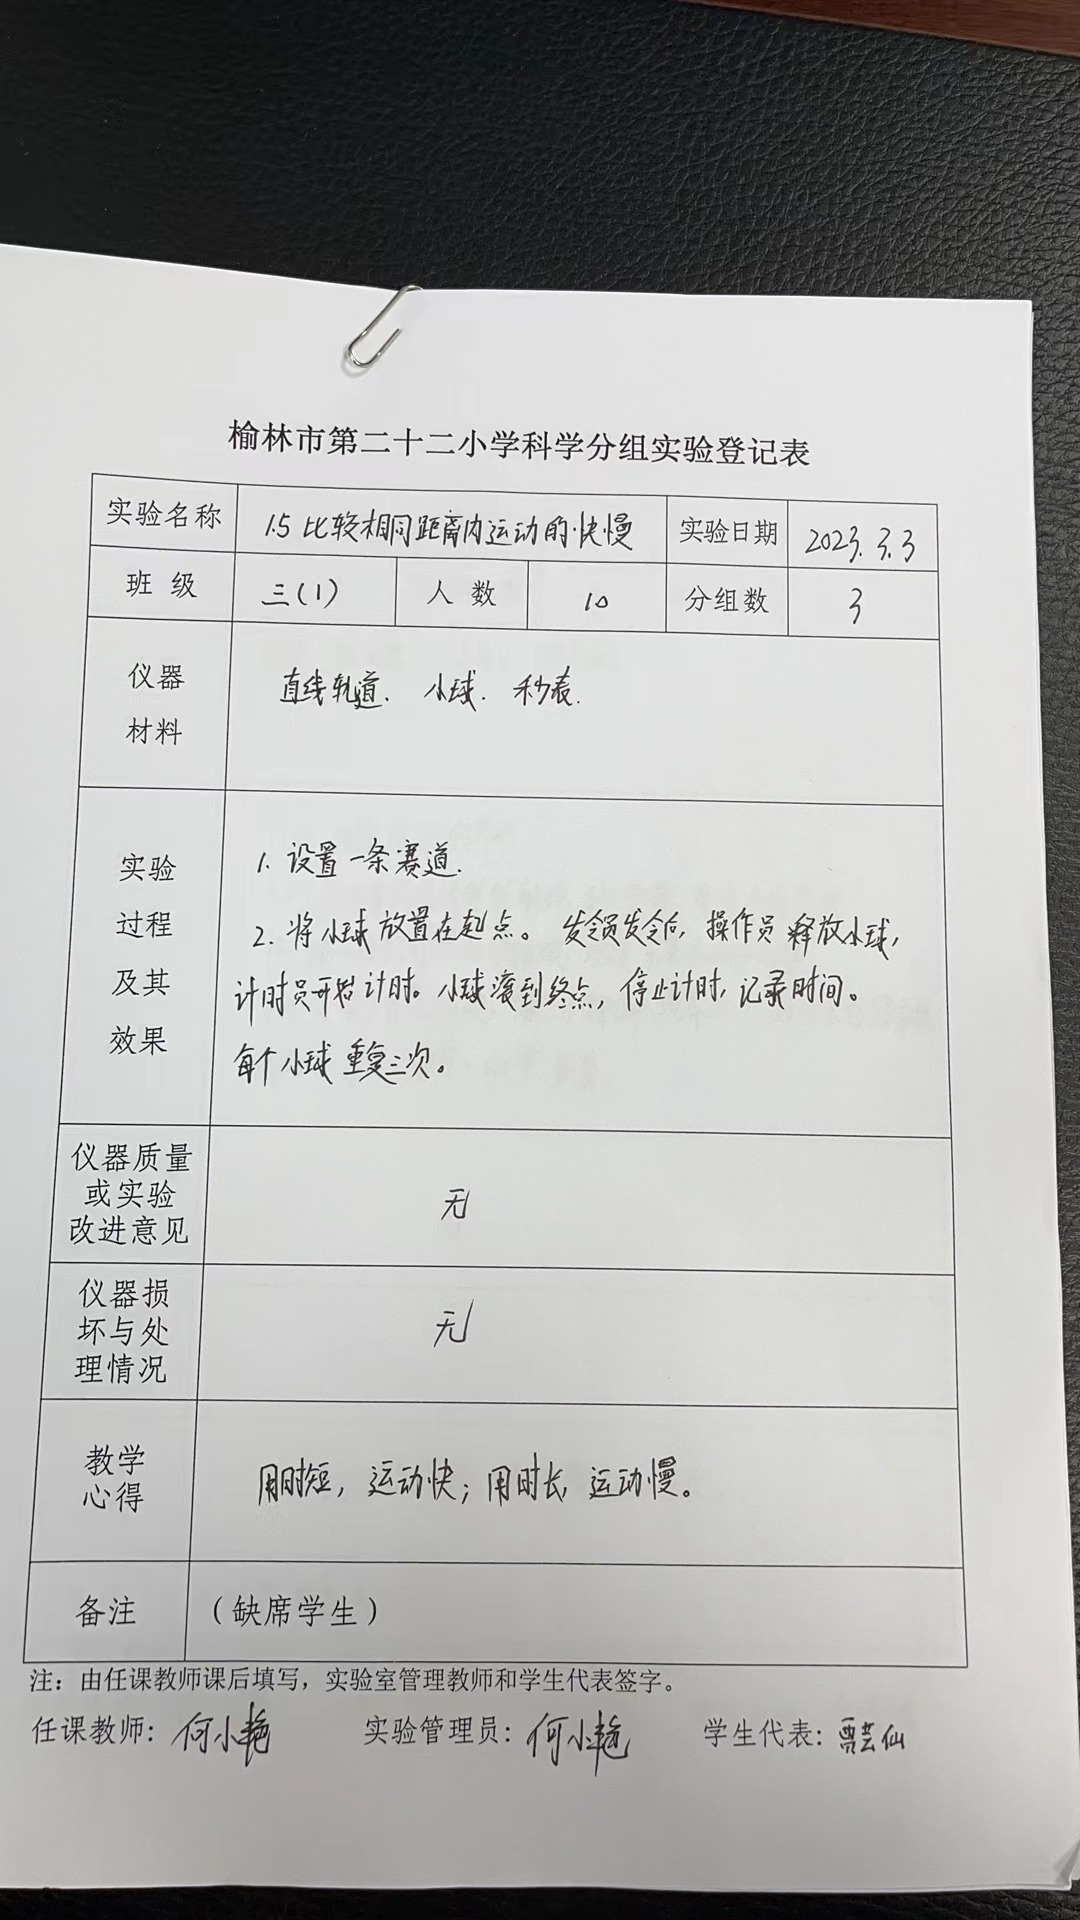 榆林市第二十二小学科学分组实验登记表
实验名称 1.5 比较相同距离内运动的快慢 实验日期 2023.3.3
班级 三(1) 人数 10 分组数 3
仪器材料 直线轨道. 小球. 秒表.
实验过程及其效果
1. 设置一条赛道.
2. 将小球放置在起点。发令员发令后, 操作员释放小球,
计时员开始计时。小球滚到终点, 停止计时, 记录时间。
每个小球重复三次。
仪器质量或实验改进意见 无
仪器损坏与处理情况 无
教学心得 用时短, 运动快; 用时长, 运动慢。
备注 (缺席学生)
注：由任课教师课后填写，实验室管理教师和学生代表签字。
任课教师：何小艳 实验管理员：何小艳 学生代表：贾芸仙